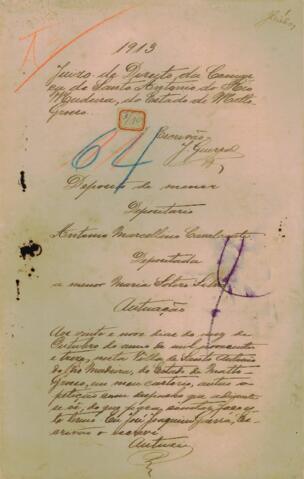 1913
Juizo de Direito da Comar-
ca de Santo Antonio do Rio
Madeira, do Estado de Matto
Grosso.
Escrivão
J. Guerra
64
Deposito de menor
Depositario
Antonio Marcellino Cavalcante
Depositada
a menor Maria
Autuação
Aos vinte e nove dias do mez de
Outubro do anno de mil novecentos
e treze, nesta Villa de Santo Antonio
do Rio Madeira, do Estado de Matto-
Grosso, em meu cartorio, autuo a
petição com despacho que adiante
se vê, do que, para constar, faço es-
te termo. Eu José Joaquim Guerra, Es-
crivão o escrevi
Autuei